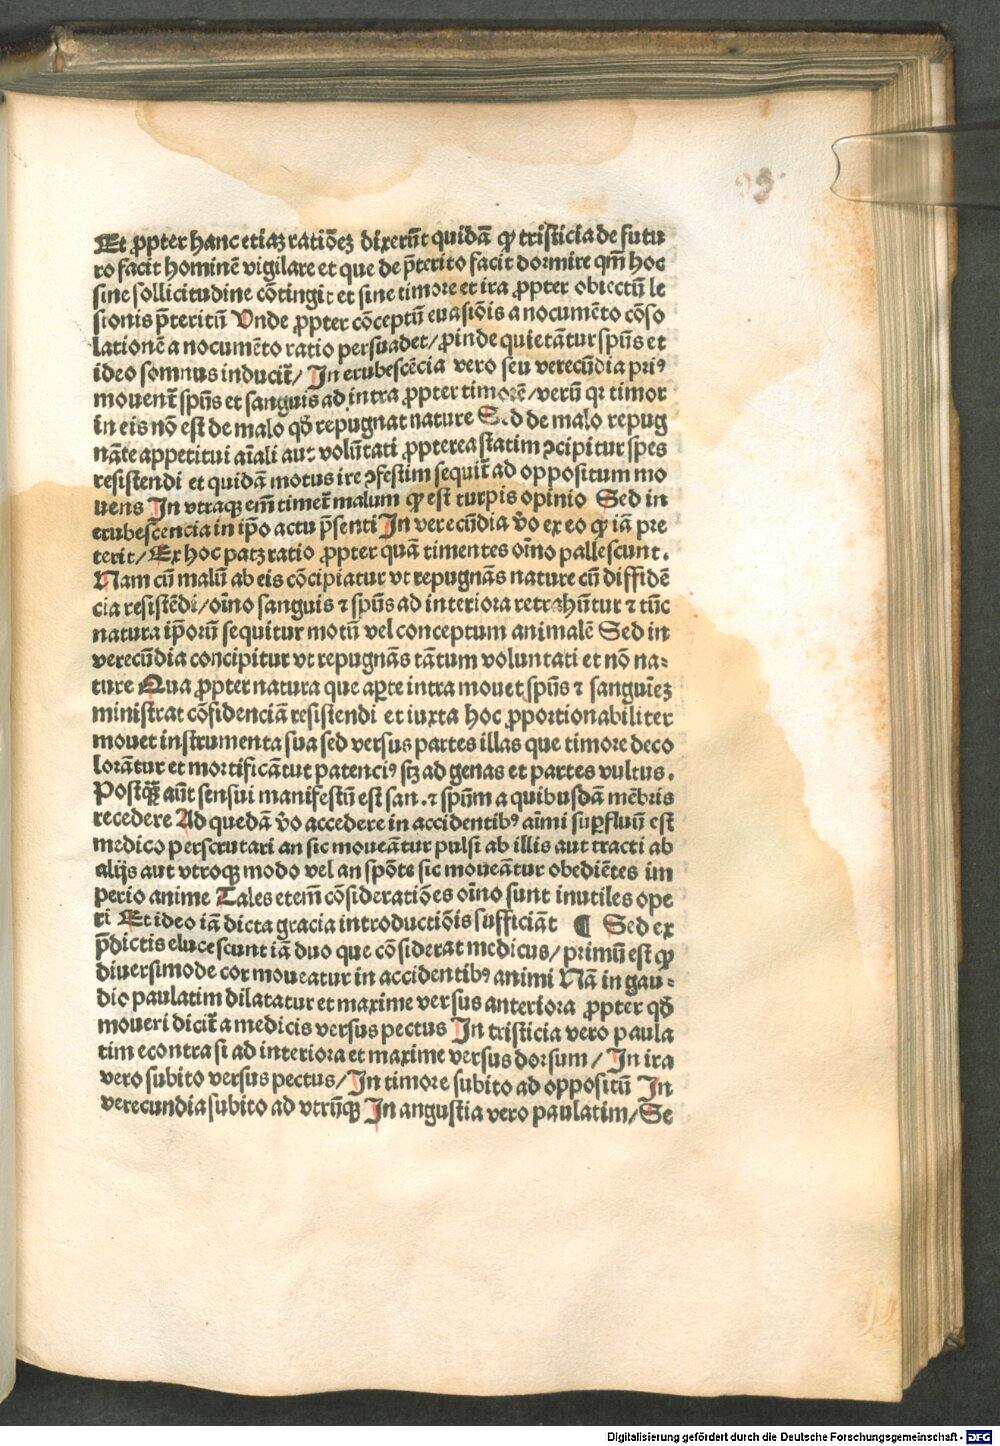 Et ꝓpter hanc etiaꝫ ratiōeꝫ dixerūt quidā ꝙ tristicia de futu
ro facit hominē vigilare et que de p̄terito facit dormire qm̄ hoc
sine sollicitudine cōtingit et sine timore et ira ꝓpter obiectū le
sionis p̄teritū Vnde ꝓpter cōceptū euasiōis a nocumēto cōso
lationē a nocumēto ratio persuadet/ ꝓinde quietātur spūs et
ideo somnus inducit̄/ In erubescēcia vero seu verecūdia priꝰ
mouent̄ spūs et sanguis ad intra ꝓpter timorē/ verū qꝛ timor
in eis nō est de malo qd̄ repugnat nature Sed de malo repug
nāte appetitui aīali aut volūtati ꝓpterea statim ꝯcipitur spes
resistendi et quidā motus ire ꝯfestim sequit̄ ad oppositum mo
uens In vtraqꝫ em̄ timet̄ malum ꝙ est turpis opinio Sed in
erubescencia in ip̄o actu p̄senti In verecūdia v̄o ex eo ꝙ iā pre
terit/ Ex hoc patꝫ ratio ꝓpter quā timentes oīno pallescunt.
Nam cū malū ab eis cōcipiatur vt repugnās nature cū diffidē
cia resistēdi/ oīno sanguis ⁊ spūs ad interiora retrahūtur ⁊ tūc
natura ip̄orū sequitur motū vel conceptum animalē Sed in
verecūdia concipitur vt repugnās tātum voluntati et nō na⸗
ture Qua ꝓpter natura que aꝑte intra mouet spūs ⁊ sanguīeꝫ
ministrat cōfidenciā resistendi et iuxta hoc ꝓportionabiliter
mouet instrumenta sua sed versus partes illas que timore deco
lorātur et mortificātut patenciꝰ sꝫ ad genas et partes vultus.
Postqꝫ aūt sensui manifestū est san. ⁊ spūm a quibusdā mēbris
recedere Ad quedā v̄o accedere in accidentibꝰ aīmi suꝑfluū est
medico perscrutari an sic moueātur pulsi ab illis aut tracti ab
alijs aut vtroqꝫ modo vel an spōte sic moueātur obediētes im
perio anime Tales etem̄ cōsideratiōes oīno sunt inutiles ope
ri Et ideo iā dicta gracia introductiōis sufficiāt ¶ Sed ex
p̄dictis elucescunt iā duo que cōsiderat medicus/ primū est ꝙ
diuersimode cor moueatur in accidentibꝰ animi Nā in gau⸗
dio paulatim dilatatur et maxime versus anteriora ꝓpter qd̄
moueri dicit̄ a medicis versus pectus In tristicia vero paula
tim econtra si ad interiora et maxime versus dorsum/ In ira
vero subito versus pectus/ In timore subito ad oppositū In
verecundia subito ad vtrūqꝫ In angustia vero paulatim/ Se
Digitalisierung gefördert durch die Deutsche Forschungsgemeinschaft - DFG